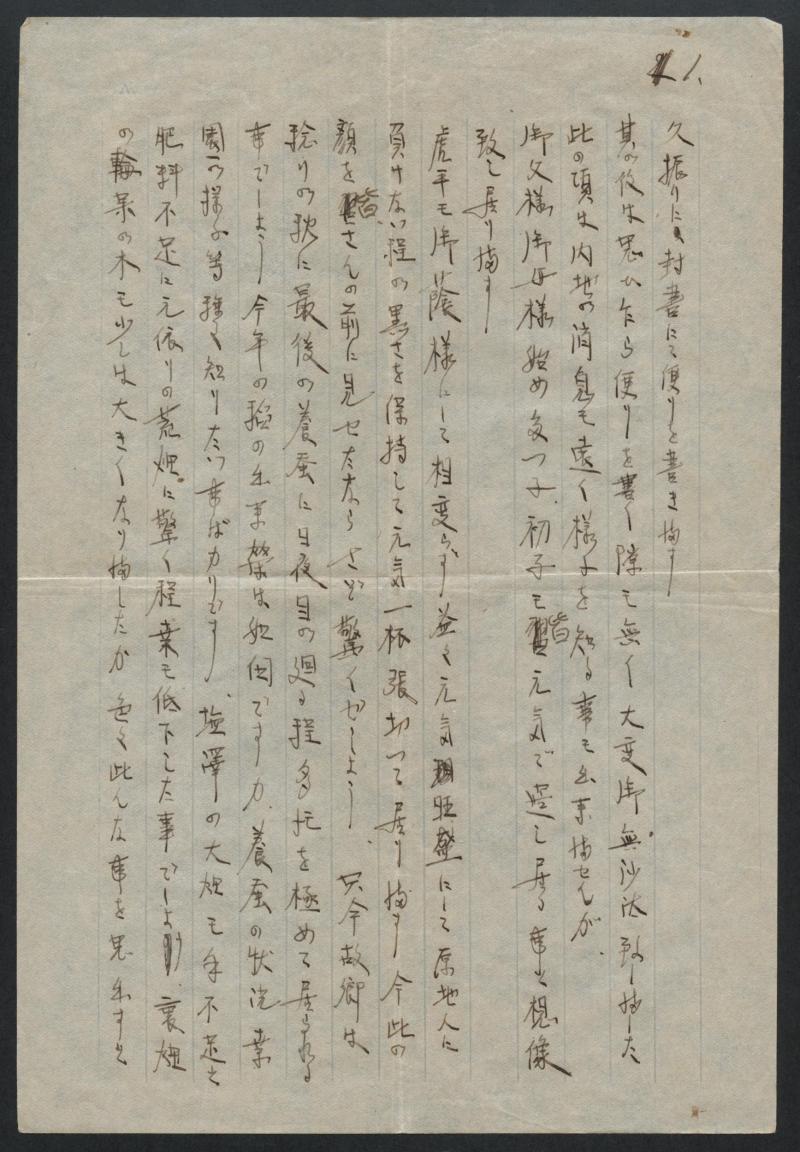 1.
久振りに封書にて便りを書き揃す
其の后は思ひ乍ら便りを書く隙も無く大変御無沙汰致し揃した
此の頃は内地の消息も遠く様子を知る事も出来揃せんが、
御父様御母様始め多つ子、初子も皆元気で過し居る事と想像
致し居り揃す
虎平も御蔭様にして相変らず益々元気旺盛にして原地人に
負けない程の黒さを保持して元気一杯張切つて居り揃す 今此の
顔を皆さんの前に見せたなら さぞ驚くでしよう、只今故郷は
稔りの秋に最後の養蚕に日夜目の廻る程多忙を極めて居られる
事でしよう 今年の稲の出来榮は如何ですか、養蚕の状况桑
園の様子等 種々知りたい事ばカりです、塩澤の大畑も手不足と
肥料不足に元依りの荒畑に驚く程桑も低下した事でしよう、裏畑
の苹果の木も少しは大きくなり揃したか 色々此んな事を思出すと